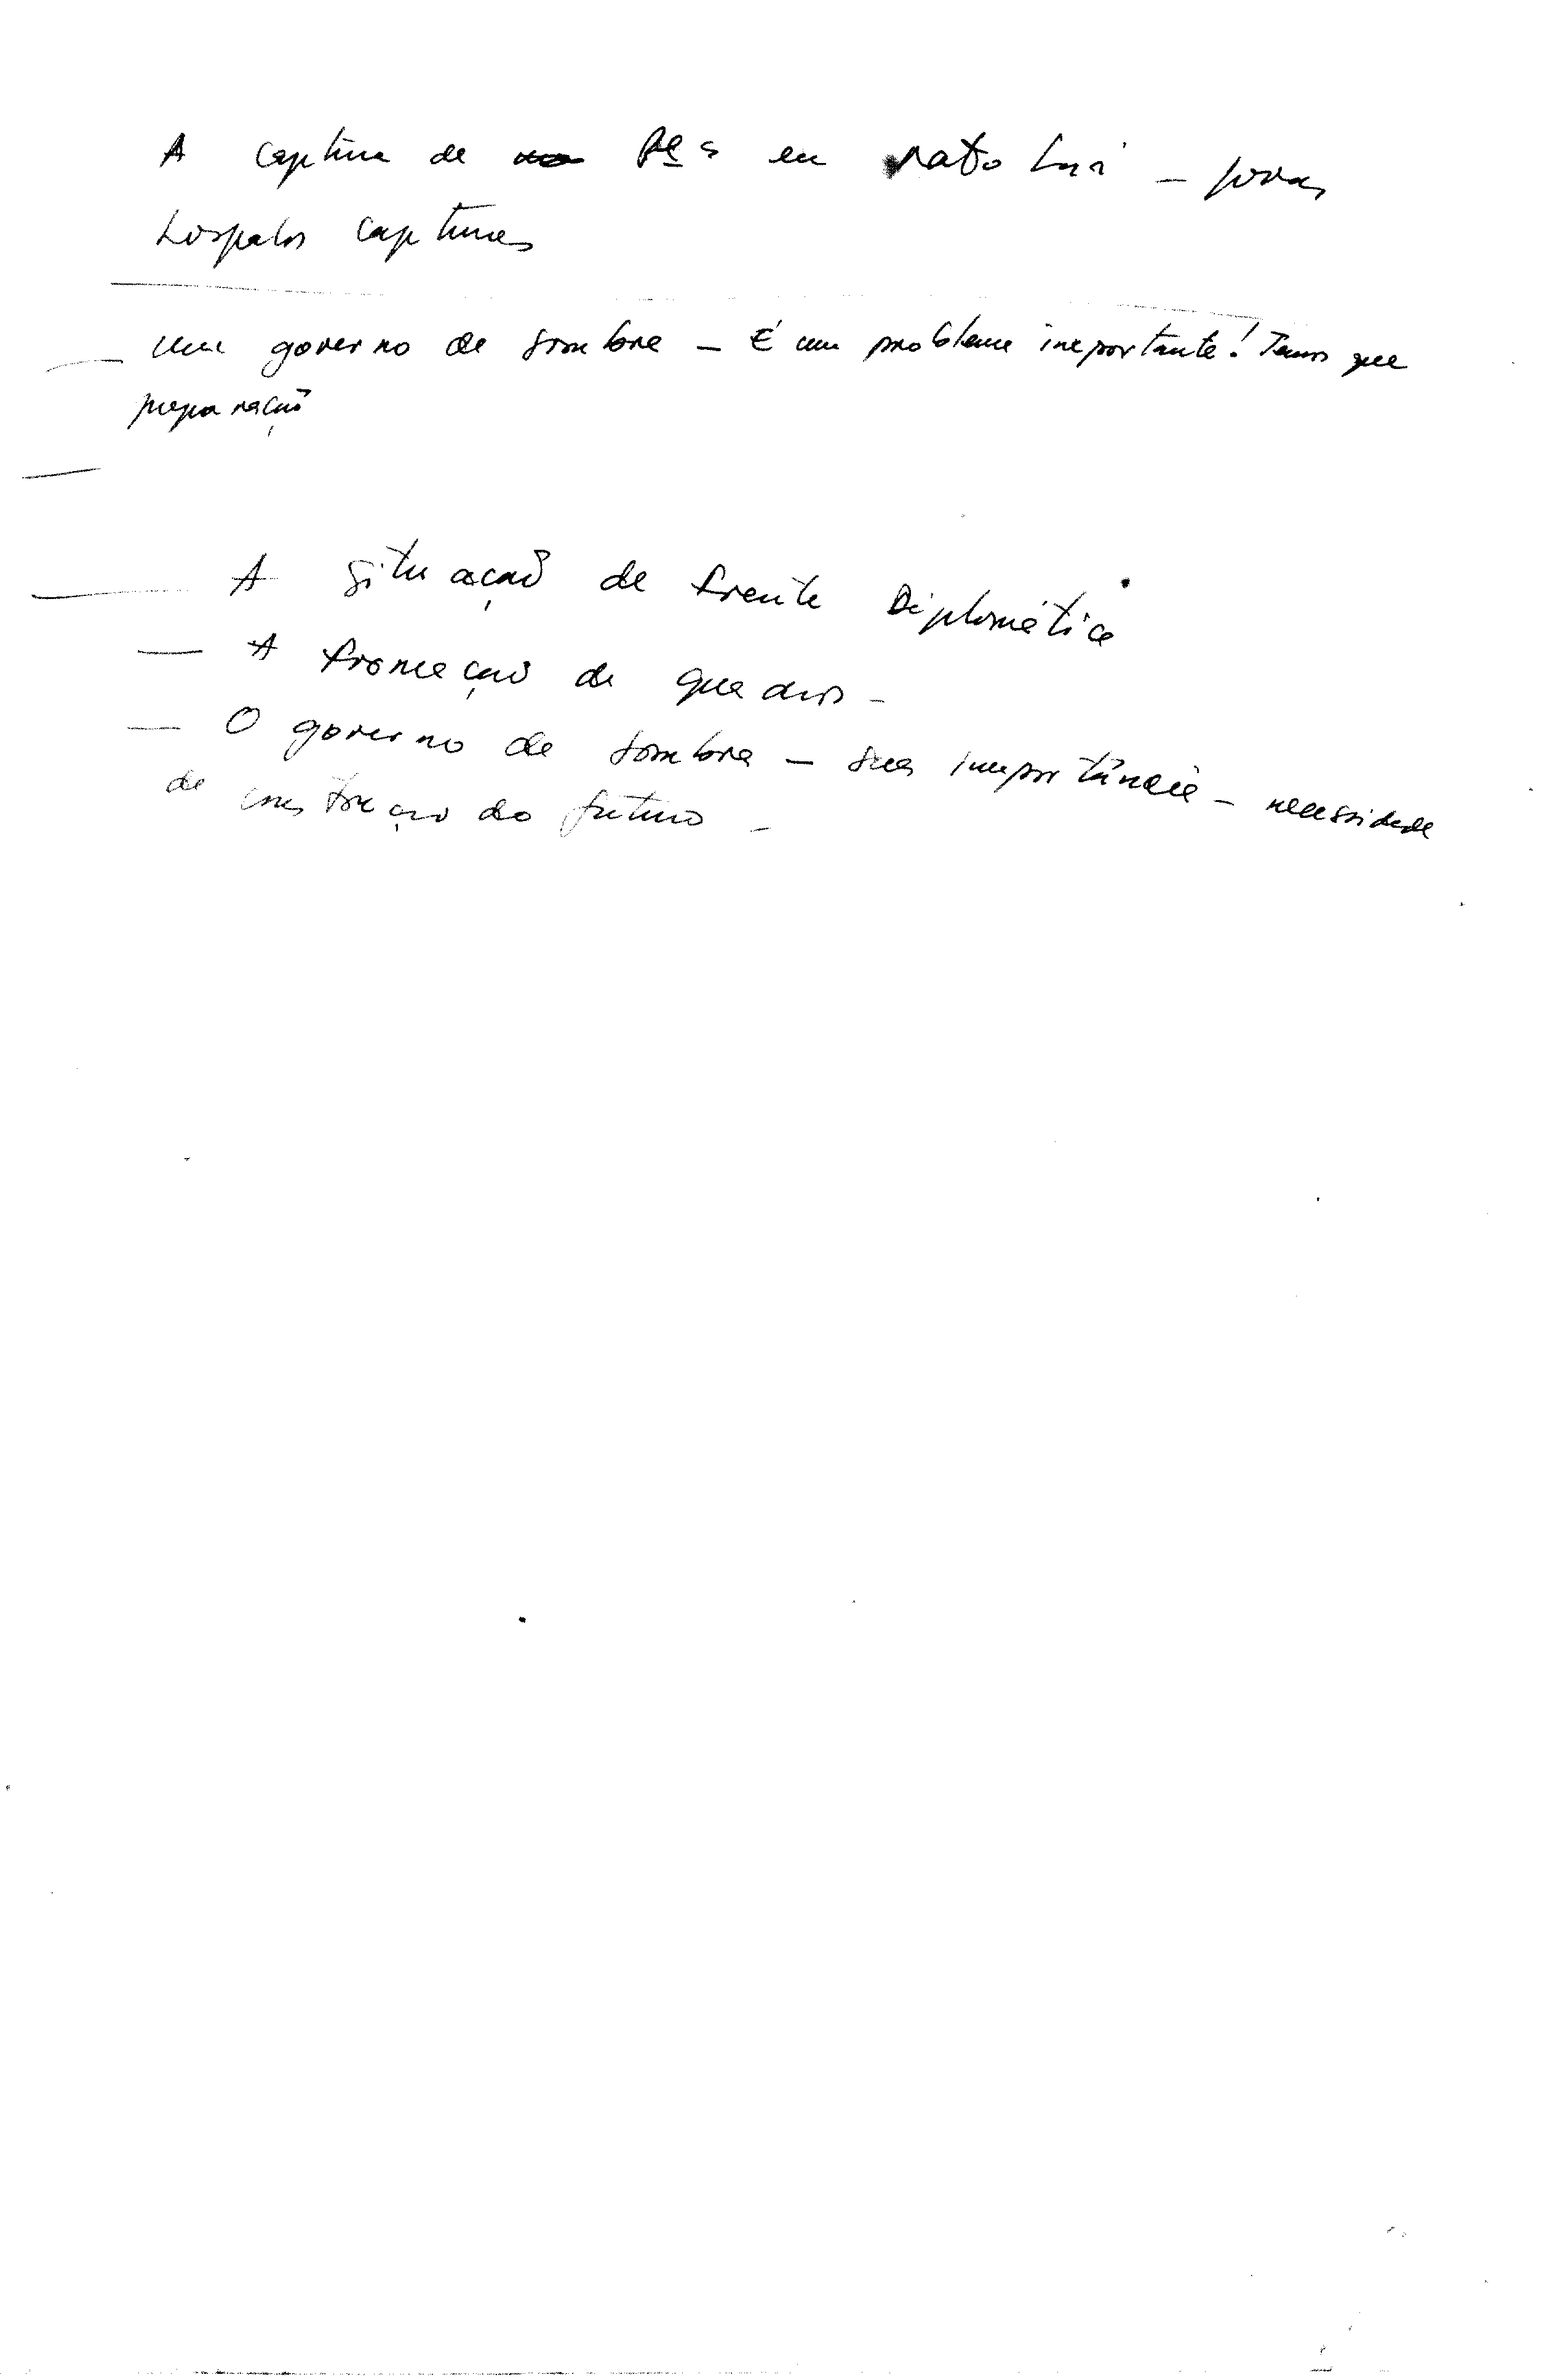 A captura de em Mato Lari –
Lospalos capturas
– Um governo de sombra – É um problema importante! Temos que
preparação
– A situação de frente Diplomática
– A fromação de quadros –
– O governo de sombra – sua importância – necessidade
de construção do futuro –